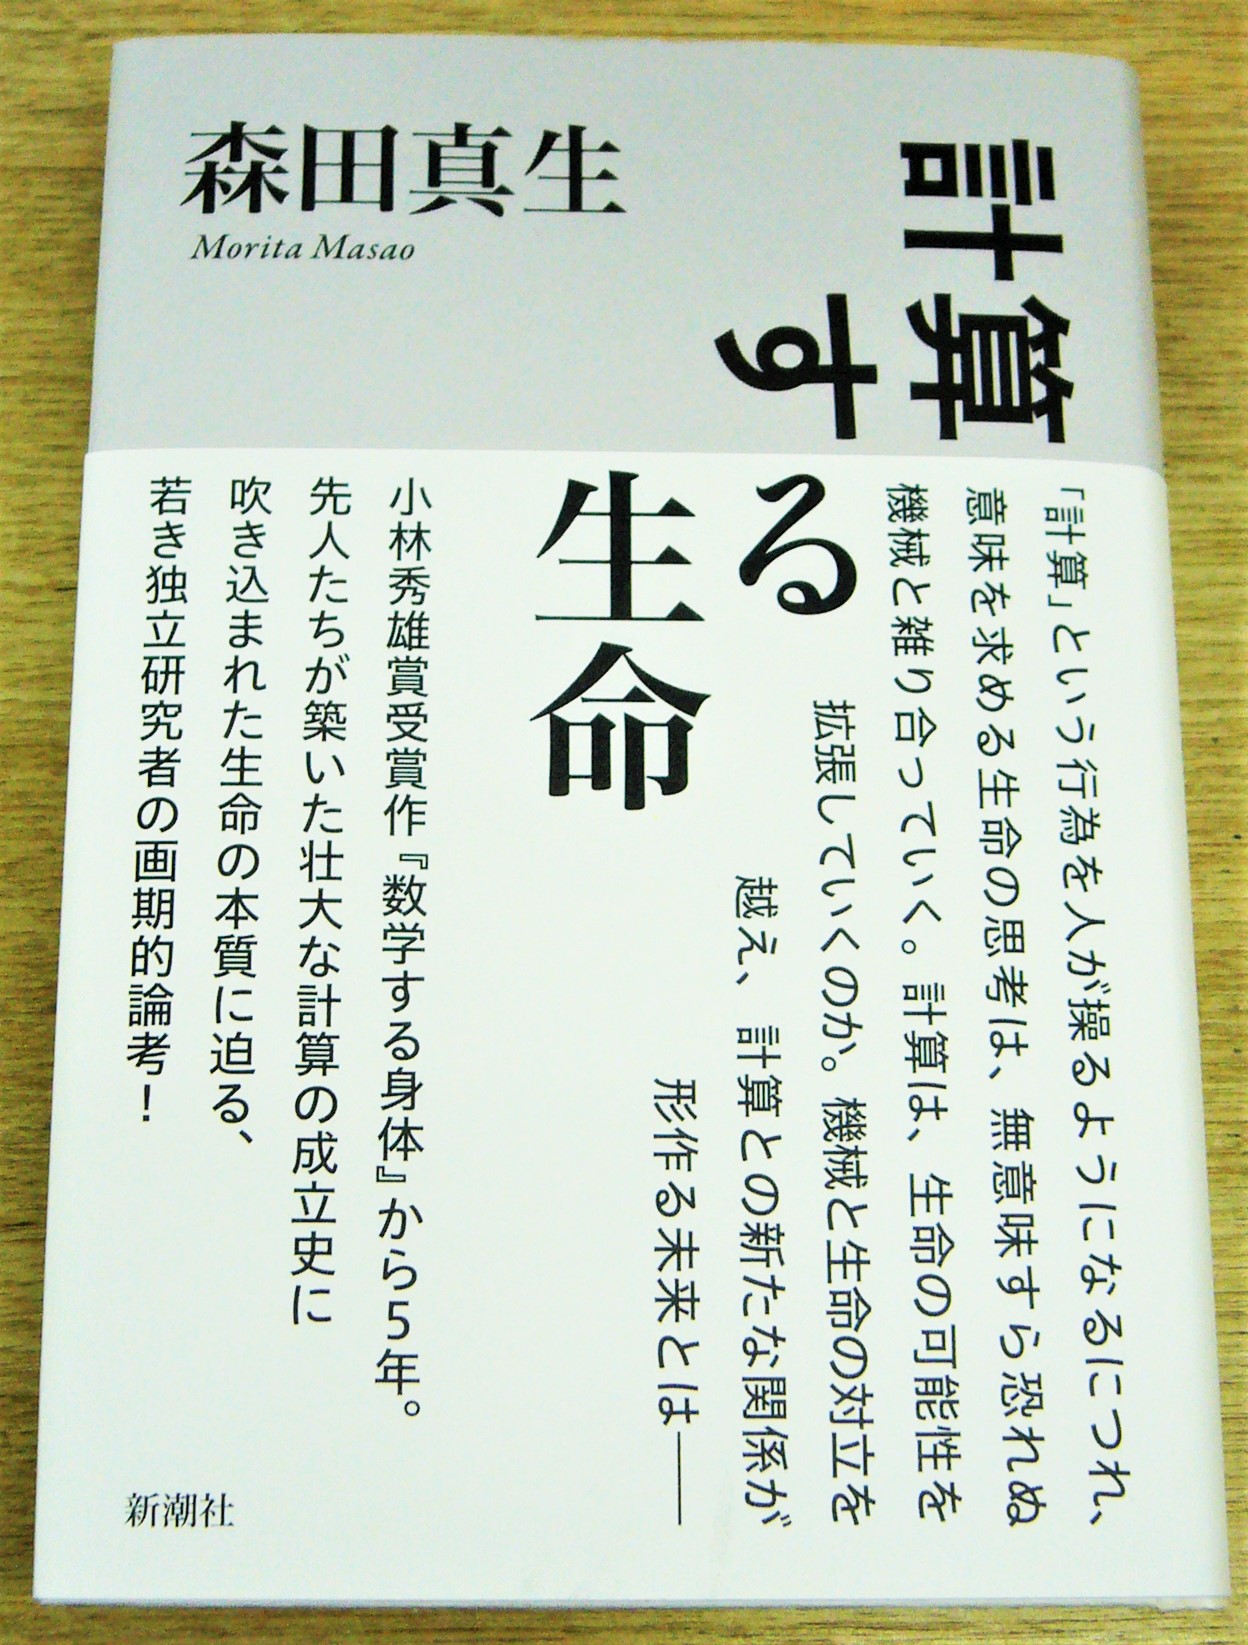 森田真生
Morita Masao
計算
する
生命
「計算」という行為を人が操るようになるにつれ、
意味を求める生命の思考は、無意味すら恐れぬ
機械と雑り合っていく。計算は、生命の可能性を
拡張していくのか。機械と生命の対立を
越え、計算との新たな関係が
形作る未来とは――
小林秀雄賞受賞作『数学する身体』から5年。
先人たちが築いた壮大な計算の成立史に
吹き込まれた生命の本質に迫る、
若き独立研究者の画期的論考！
新潮社